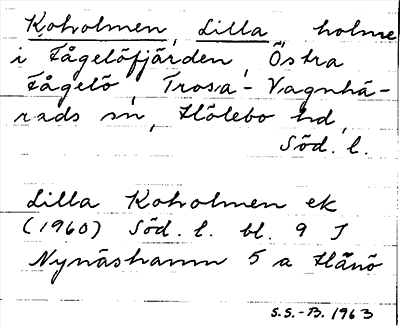 Koholmen, Lilla holme
i Fågelöfjärden, Östra
Fågelö, Trosa-Vagnhä-
rads sn, Hölebo hd,
Söd. l.
Lilla Koholmen ek
(1960) Söd. l. bl. 9 J
Nynäshamn 5 a Hånö
S.S.-B. 1963